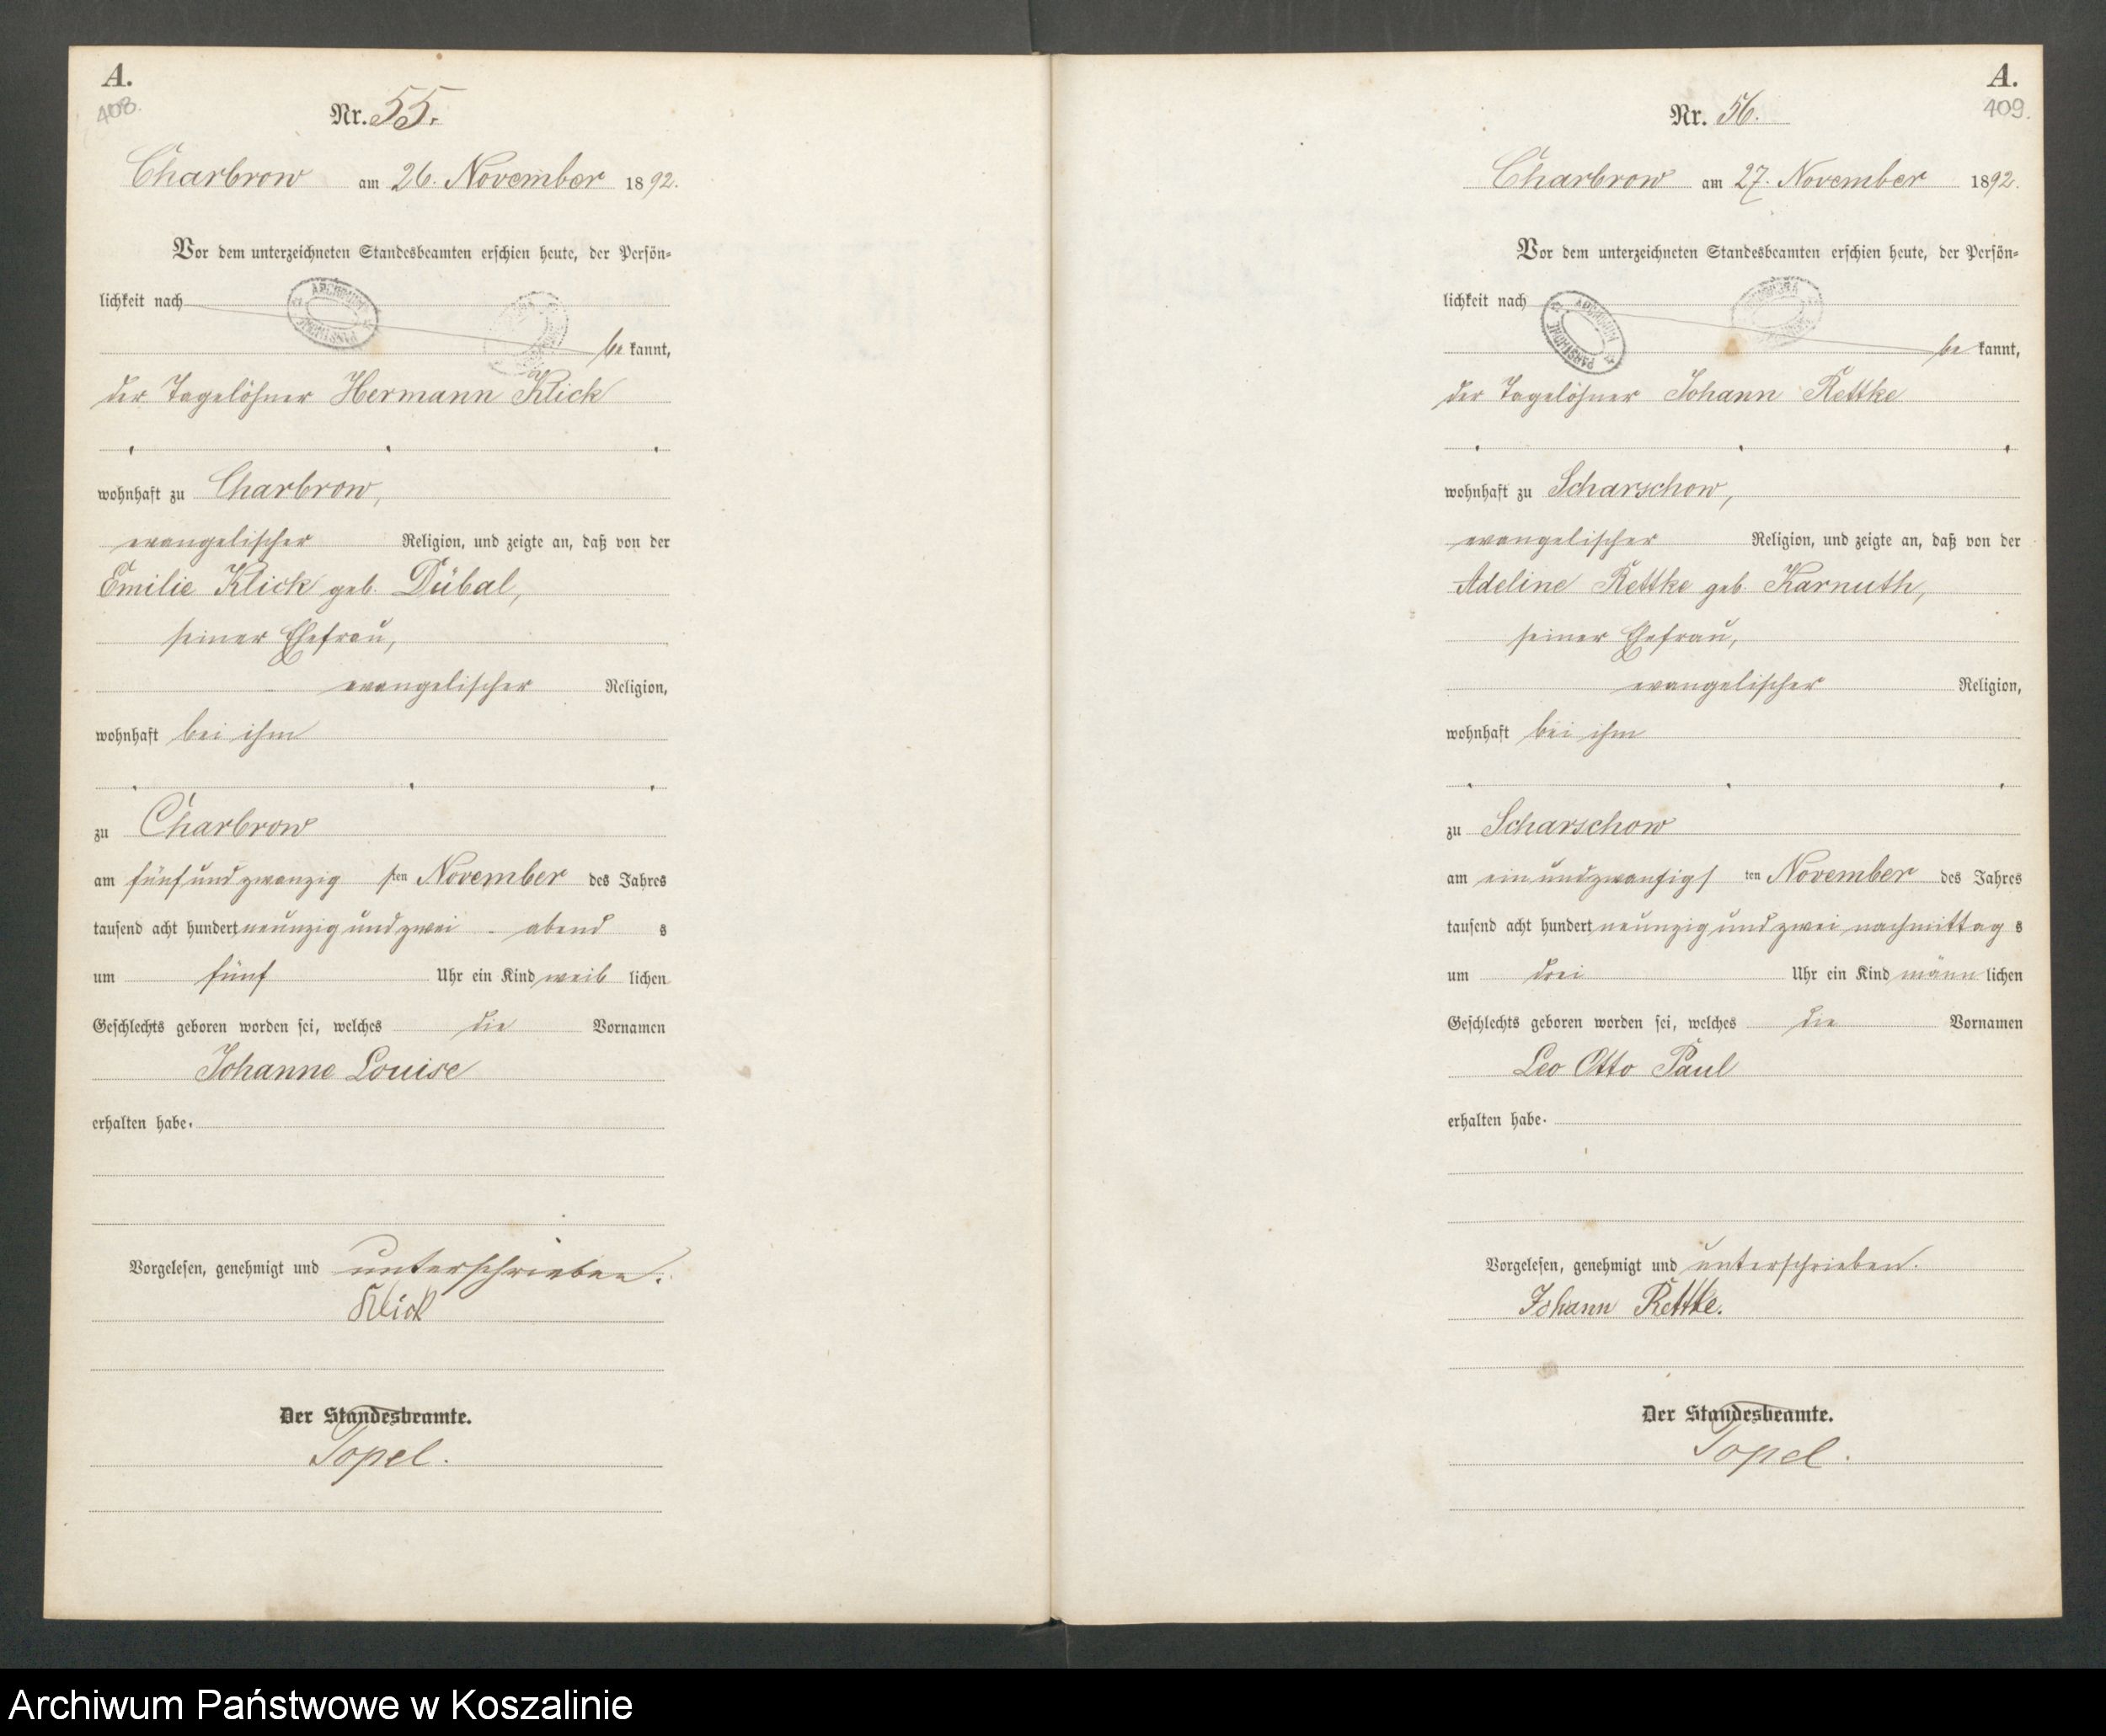 A.
408.
Nr. 55.
Charbrow am 26. November 1892.
Vor dem unterzeichneten Standesbeamten erschien heute, der Persön-
lichkeit nach
bekannt,
der Tagelöhner Hermann Klick
wohnhaft zu Charbrow,
evangelischer Religion, und zeigte an, daß von der
Emilie Klick geb. Dübal,
seiner Ehefrau,
evangelischer Religion,
wohnhaft bei ihm
zu Charbrow
am fünfundzwanzig sten November des Jahres
tausend acht hundert neunzig und zwei - abend s
um fünf Uhr ein Kind weib lichen
Geschlechts geboren worden sei, welches die Vornamen
Johanne Louise
erhalten habe.
Vorgelesen, genehmigt und unterschrieben.
Klick
Der Standesbeamte.
Topel.
A.
409.
Nr. 56.
Charbrow am 27. November 1892.
Vor dem unterzeichneten Standesbeamten erschien heute, der Persön-
lichkeit nach
bekannt,
der Tagelöhner Johann Rettke
wohnhaft zu Scharschow,
evangelischer Religion, und zeigte an, daß von der
Adeline Rettke geb. Karnuth,
seiner Ehefrau,
evangelischer Religion,
wohnhaft bei ihm
zu Scharschow
am einundzwanzigs ten November des Jahres
tausend acht hundert neunzig und zwei nachmittag s
um drei Uhr ein Kind männ lichen
Geschlechts geboren worden sei, welches die Vornamen
Leo Otto Paul
erhalten habe.
Vorgelesen, genehmigt und unterschrieben.
Johann Rettke.
Der Standesbeamte.
Topel.
Archiwum Państwowe w Koszalinie